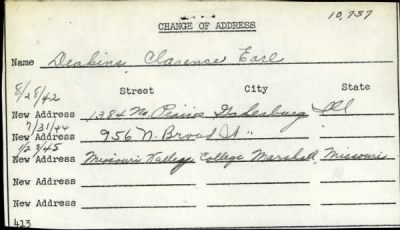 10,737
CHANGE OF ADDRESS
Name Deakins Clarence Earl
8/28/42 Street City State
New Address 1384 No. Prairie Galesburg Ill
7/31/44
New Address 956 N. Broad St. "
1/23/45
New Address Missouri Valley College Marshall, Missouri
New Address
New Address
413